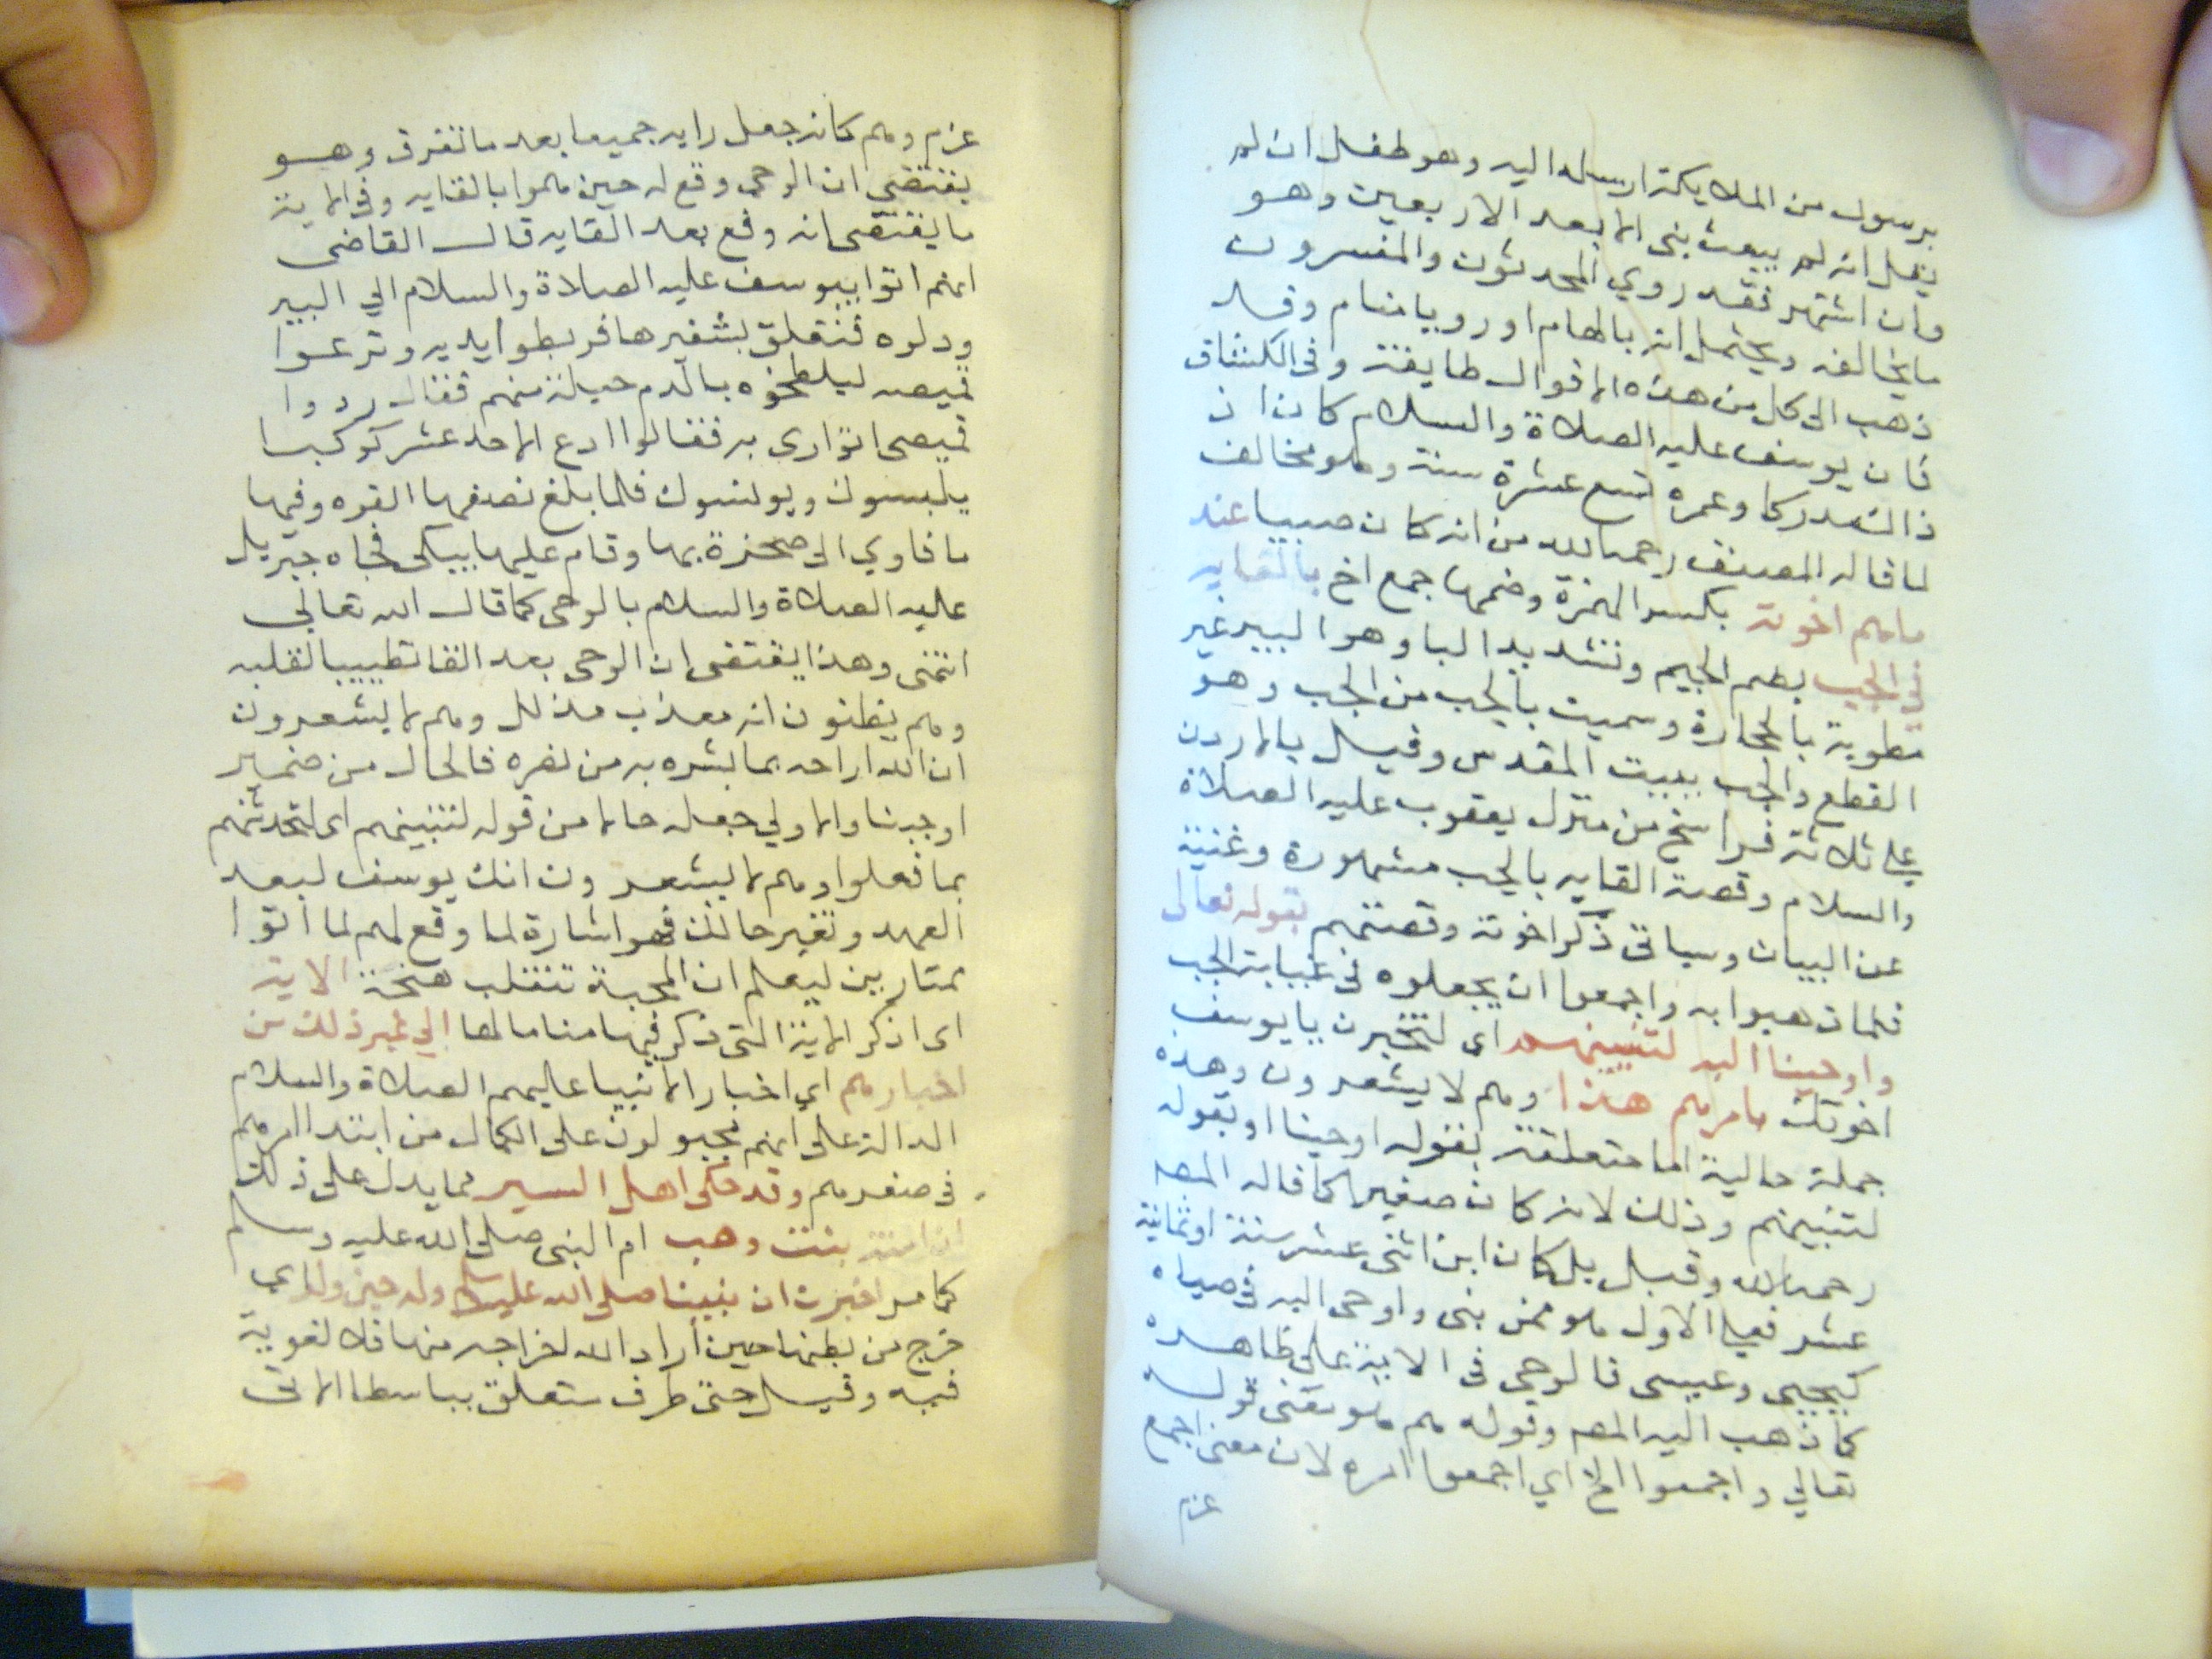 برسول من الملايكة ارسله اليه وهو طفل ان لم
يقل انه لم يبعث نبى الا بعد الاربعين وهو
وان اشتهر فقد روي المحدثون والمفسرون
ما يخالفه ويحتمل انه بالهام او رويا منام وقد
ذهب الى كل من هذه الاقوال طايفة وفى الكشاف
فان يوسف عليه الصلاة والسلام كان اذ
ذالك مدركا وعمره تسع عشرة سنة وهو مخالف
لما قاله المصنف رحمه الله من انه كان صبيا عند
ما هم اخوته بكسر الهمزة وضمها جمع اخ بالقايه
في الجب بضم الجيم وتشديد البا وهو البير غير
مطوية بالحجارة وسميت بالجب من الجب وهو
القطع والجب ببيت المقدس وقيل بالاردن
على ثلاثة فراسخ من منزل يعقوب عليه الصلاة
والسلام وقصة القايه بالجب مشهورة وغنية
عن البيان وسياتى ذكر اخوته وقصتهم بقوله تعالى
فلما ذهبوا به واجمعوا ان يجعلوه فى غيابة الجب
واوحينا اليه لتنبينهم اى لتخبرن يا يوسف
اخوتك بامرهم هذا وهم لا يشعرون وهذه
جملة حالية اما متعلقة بقوله اوحينا او بقوله
لتنبينهم وذلك لانه كان صغيرا كما قاله المص
رحمه الله وقيل بل كان ابن اثنى عشر سنة او ثمانية
عشر فعلى الاول هو ممن نبى واوحى اليه فى صباه
كيحيى وعيسى فالوحي فى الاية على ظاهره
كما ذهب اليه المص وقوله هم هو معنى قوله
تعالي واجمعوا الخ اي اجمعوا امره لان معنى اجمع
عزم
عزم وهم كانه جعل رايه جميعا بعد ما تفرق وهو
يقتضي ان الوحى وقع له حين هموا بالقايه وفى الاية
ما يقتضى انه وقع بعد القايه قال القاضى
انهم اتوا بيوسف عليه الصلاة والسلام الي البير
ودلوه فتعلق بشفيرها فربطوا يديه ونزعوا
قميصه ليلطخوه بالدم حيلة منهم فقال ردوا
قميصى اتوارى به فقالوا ادع الاحد عشر كوكبا
يلبسوك ويونسوك فلما بلغ نصفها القوه وفيها
ما فاوي الى صخرة بها وقام عليها يبكى فجاه جبريل
عليه الصلاة والسلام بالوحى كما قال الله تعالي
انتهى وهذا يقتضى ان الوحى بعد القا تطييبا لقلبه
وهم يظنون انه معذب مذلل وهم لا يشعرون
ان الله اراحه بما بشره به من نصره فالحال من ضمير
اوحينا والاولي جعله حالا من قوله لتنبينهم اى لتحدثنهم
بما فعلوا وهم لا يشعرون انك يوسف لبعد
العهد وتغير حالك فهو اشارة لما وقع لهم لما اتوا
ممتارين ليعلم ان المحبة تنقلب محنة الاية
اى اذكر الاية التى ذكر فيها منا مالها الي غير ذلك من
اخبارهم اي اخبار الانبيا عليهم الصلاة والسلام
الدالة على انهم مجبولون على الكمال من ابتدا امرهم
فى صغرهم وقد حكى اهل السير مما يدل على ذلك
ان امنة بنت وهب ام النبى صلى الله عليه وسلم
كما مر اخبرت ان نبينا صلى الله عليه وسلم ولد حين ولد اي
خرج من بطنها حين اراد الله اخراجه منها فلا لغوية
فيه وقيل حتى ظرف متعلق بباسطا الاتى